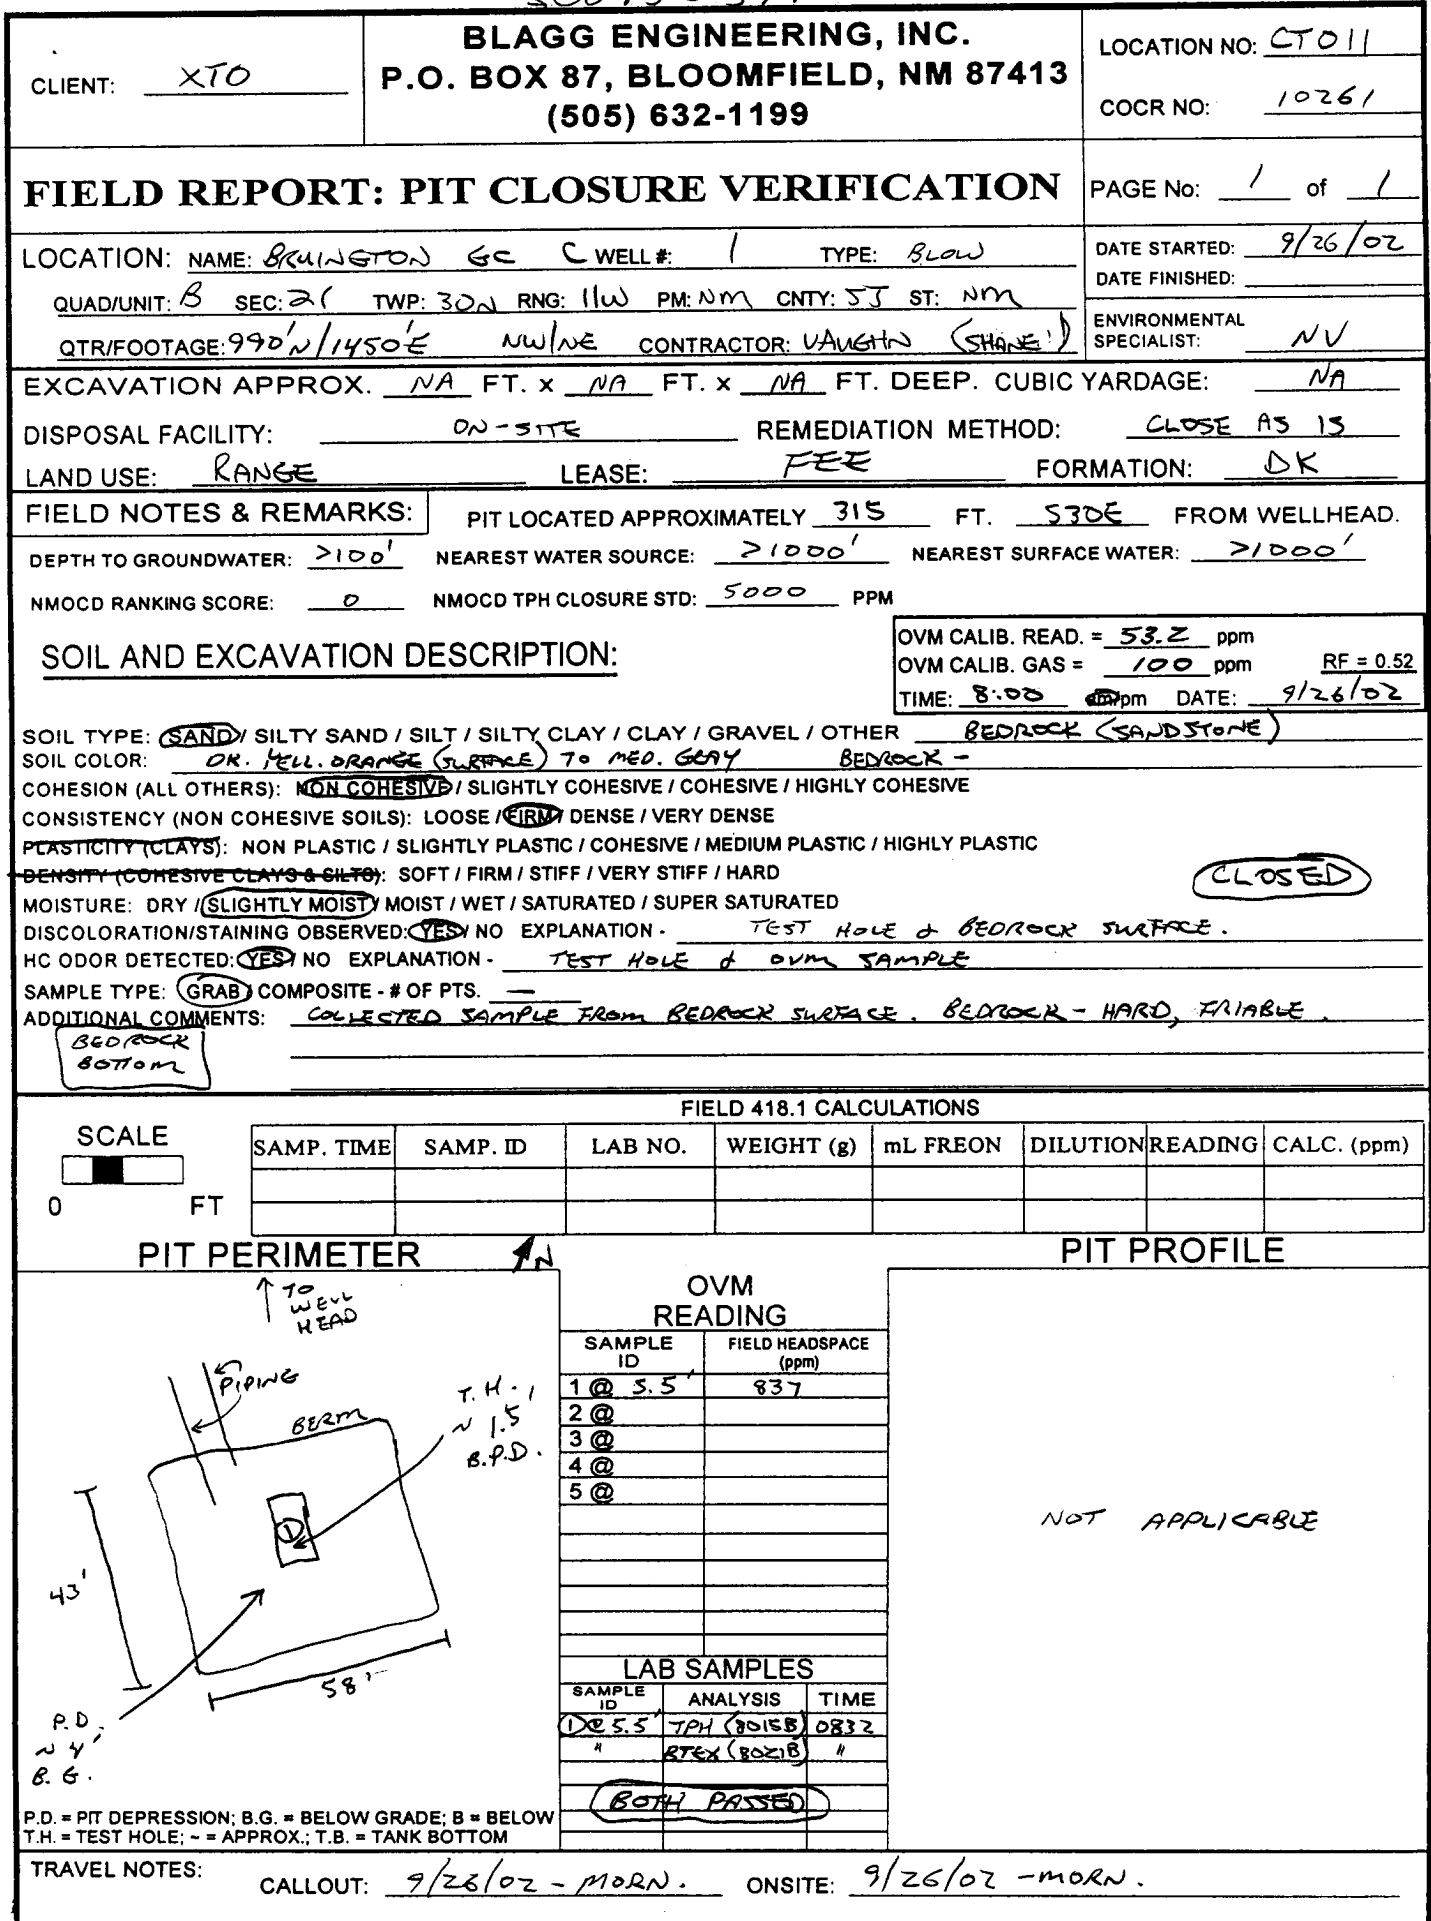 BLAGG ENGINEERING, INC.
P.O. BOX 87, BLOOMFIELD, NM 87413
(505) 632-1199
CLIENT: XTO
LOCATION NO: CT011
COCR NO: 10261
FIELD REPORT: PIT CLOSURE VERIFICATION
PAGE No: 1 of 1
LOCATION: NAME: BRUINGTON GC C WELL #: 1 TYPE: BLOW
QUAD/UNIT: B SEC: 21 TWP: 30N RNG: 11W PM: NM CNTY: SJ ST: NM
QTR/FOOTAGE: 990'N/1450'E NW/NE CONTRACTOR: VAUGHN (SHANE)
DATE STARTED: 9/26/02
DATE FINISHED:
ENVIRONMENTAL SPECIALIST: NV
EXCAVATION APPROX. NA FT. x NA FT. x NA FT. DEEP. CUBIC YARDAGE: NA
DISPOSAL FACILITY: ON-SITE REMEDIATION METHOD: CLOSE AS IS
LAND USE: RANGE LEASE: FEE FORMATION: DK
FIELD NOTES & REMARKS: PIT LOCATED APPROXIMATELY 315 FT. S30E FROM WELLHEAD.
DEPTH TO GROUNDWATER: >100' NEAREST WATER SOURCE: >1000' NEAREST SURFACE WATER: >1000'
NMOCD RANKING SCORE: 0 NMOCD TPH CLOSURE STD: 5000 PPM
SOIL AND EXCAVATION DESCRIPTION:
OVM CALIB. READ. = 53.2 ppm
OVM CALIB. GAS = 100 ppm RF = 0.52
TIME: 8:00 am/pm DATE: 9/26/02
SOIL TYPE: SAND / SILTY SAND / SILT / SILTY CLAY / CLAY / GRAVEL / OTHER BEDROCK (SANDSTONE)
SOIL COLOR: DK. YELL. ORANGE (SURFACE) TO MED. GRAY BEDROCK -
COHESION (ALL OTHERS): NON COHESIVE / SLIGHTLY COHESIVE / COHESIVE / HIGHLY COHESIVE
CONSISTENCY (NON COHESIVE SOILS): LOOSE / FIRM / DENSE / VERY DENSE
PLASTICITY (CLAYS): NON PLASTIC / SLIGHTLY PLASTIC / COHESIVE / MEDIUM PLASTIC / HIGHLY PLASTIC
DENSITY (COHESIVE CLAYS & SILTS): SOFT / FIRM / STIFF / VERY STIFF / HARD
CLOSED
MOISTURE: DRY / SLIGHTLY MOIST / MOIST / WET / SATURATED / SUPER SATURATED
DISCOLORATION/STAINING OBSERVED: YES / NO EXPLANATION - TEST HOLE & BEDROCK SURFACE.
HC ODOR DETECTED: YES / NO EXPLANATION - TEST HOLE & OVM SAMPLE
SAMPLE TYPE: GRAB / COMPOSITE - # OF PTS. —
ADDITIONAL COMMENTS: COLLECTED SAMPLE FROM BEDROCK SURFACE. BEDROCK - HARD, FRIABLE.
BEDROCK
BOTTOM
FIELD 418.1 CALCULATIONS
SCALE
0 FT
SAMP. TIME SAMP. ID LAB NO. WEIGHT (g) mL FREON DILUTION READING CALC. (ppm)
PIT PERIMETER
N
TO
WELL
HEAD
PIPING
BERM
T.H.
~ 1.5'
B.P.D.
1
43'
58'
P.D.
~ 4'
B.G.
P.D. = PIT DEPRESSION; B.G. = BELOW GRADE; B = BELOW
T.H. = TEST HOLE; ~ = APPROX.; T.B. = TANK BOTTOM
OVM
READING
SAMPLE ID FIELD HEADSPACE (ppm)
1 @ 5.5' 837
2 @
3 @
4 @
5 @
LAB SAMPLES
SAMPLE ID ANALYSIS TIME
1 @ 5.5' TPH (8015B) 0832
" BTEX (8021B) "
BOTH PASSED
PIT PROFILE
NOT APPLICABLE
TRAVEL NOTES: CALLOUT: 9/26/02 - MORN. ONSITE: 9/26/02 - MORN.